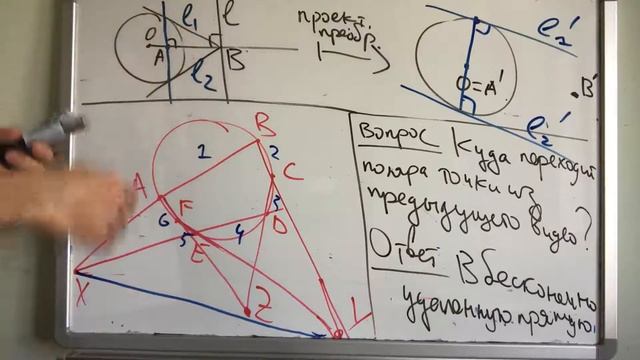 l₁
l
O
A
B
l₂
проект.
преобр.
l₂'
O=A'
B'
l₂'
B
1
2
C
A
3
F
D
6
5
4
E
X
Z
Y
Вопрос Куда переходит
поляра точки из
предыдущего видео?
Ответ В бесконечно
удаленную прямую.